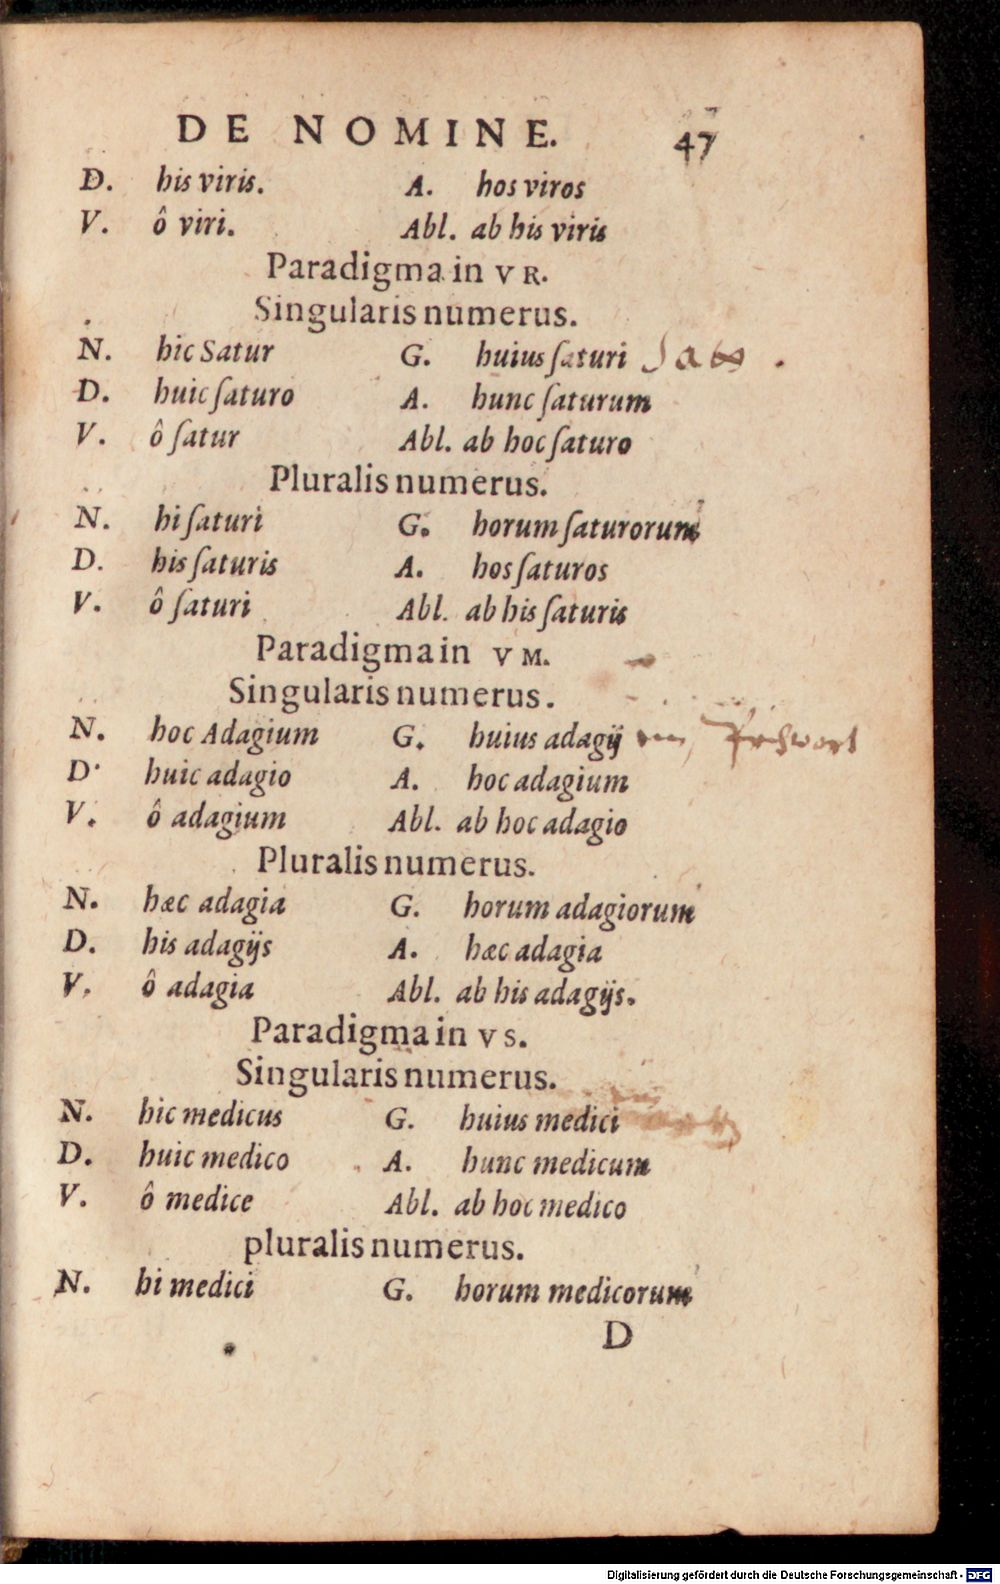 DE NOMINE. 47
D. his viris. A. hos viros
V. ô viri. Abl. ab his viris
Paradigma in VR.
Singularis numerus.
N. hic Satur G. huius ſaturi
D. huic ſaturo A. hunc ſaturum
V. ô ſatur Abl. ab hoc ſaturo
Pluralis numerus.
N. hi ſaturi G. horum ſaturorum
D. his ſaturis A. hos ſaturos
V. ô ſaturi Abl. ab his ſaturis
Paradigma in VM.
Singularis numerus.
N. hoc Adagium G. huius adagij
D. huic adagio A. hoc adagium
V. ô adagium Abl. ab hoc adagio
Pluralis numerus.
N. hæc adagia G. horum adagiorum
D. his adagijs A. hæc adagia
V. ô adagia Abl. ab his adagijs.
Paradigma in VS.
Singularis numerus.
N. hic medicus G. huius medici
D. huic medico A. hunc medicum
V. ô medice Abl. ab hoc medico
pluralis numerus.
N. hi medici G. horum medicorum
D
Digitalisierung gefördert durch die Deutsche Forschungsgemeinschaft - DFG